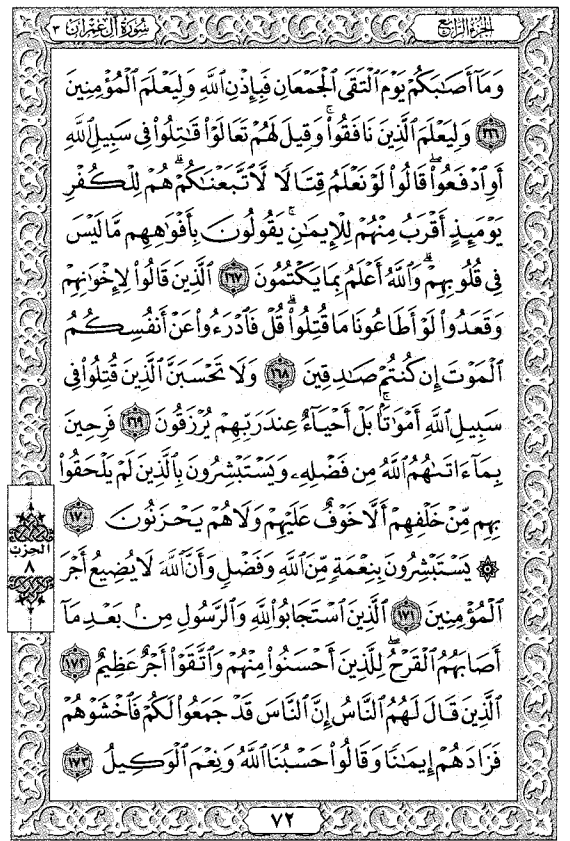 الجزء الرابع
سورة آل عمران ٣
وَمَآ أَصَٰبَكُمْ يَوْمَ ٱلْتَقَى ٱلْجَمْعَانِ فَبِإِذْنِ ٱللَّهِ وَلِيَعْلَمَ ٱلْمُؤْمِنِينَ
﴿١٦٦﴾ وَلِيَعْلَمَ ٱلَّذِينَ نَافَقُوا۟ۚ وَقِيلَ لَهُمْ تَعَالَوْا۟ قَٰتِلُوا۟ فِى سَبِيلِ ٱللَّهِ
أَوِ ٱدْفَعُوا۟ۖ قَالُوا۟ لَوْ نَعْلَمُ قِتَالًا لَّٱتَّبَعْنَٰكُمْۗ هُمْ لِلْكُفْرِ
يَوْمَئِذٍ أَقْرَبُ مِنْهُمْ لِلْإِيمَٰنِۚ يَقُولُونَ بِأَفْوَٰهِهِم مَّا لَيْسَ
فِى قُلُوبِهِمْۗ وَٱللَّهُ أَعْلَمُ بِمَا يَكْتُمُونَ ﴿١٦٧﴾ ٱلَّذِينَ قَالُوا۟ لِإِخْوَٰنِهِمْ
وَقَعَدُوا۟ لَوْ أَطَاعُونَا مَا قُتِلُوا۟ۗ قُلْ فَٱدْرَءُوا۟ عَنْ أَنفُسِكُمُ
ٱلْمَوْتَ إِن كُنتُمْ صَٰدِقِينَ ﴿١٦٨﴾ وَلَا تَحْسَبَنَّ ٱلَّذِينَ قُتِلُوا۟ فِى
سَبِيلِ ٱللَّهِ أَمْوَٰتًۢاۚ بَلْ أَحْيَآءٌ عِندَ رَبِّهِمْ يُرْزَقُونَ ﴿١٦٩﴾ فَرِحِينَ
بِمَآ ءَاتَىٰهُمُ ٱللَّهُ مِن فَضْلِهِۦ وَيَسْتَبْشِرُونَ بِٱلَّذِينَ لَمْ يَلْحَقُوا۟
بِهِم مِّنْ خَلْفِهِمْ أَلَّا خَوْفٌ عَلَيْهِمْ وَلَا هُمْ يَحْزَنُونَ ﴿١٧٠﴾
۞ يَسْتَبْشِرُونَ بِنِعْمَةٍ مِّنَ ٱللَّهِ وَفَضْلٍ وَأَنَّ ٱللَّهَ لَا يُضِيعُ أَجْرَ
ٱلْمُؤْمِنِينَ ﴿١٧١﴾ ٱلَّذِينَ ٱسْتَجَابُوا۟ لِلَّهِ وَٱلرَّسُولِ مِنۢ بَعْدِ مَآ
أَصَابَهُمُ ٱلْقَرْحُۚ لِلَّذِينَ أَحْسَنُوا۟ مِنْهُمْ وَٱتَّقَوْا۟ أَجْرٌ عَظِيمٌ ﴿١٧٢﴾
ٱلَّذِينَ قَالَ لَهُمُ ٱلنَّاسُ إِنَّ ٱلنَّاسَ قَدْ جَمَعُوا۟ لَكُمْ فَٱخْشَوْهُمْ
فَزَادَهُمْ إِيمَٰنًا وَقَالُوا۟ حَسْبُنَا ٱللَّهُ وَنِعْمَ ٱلْوَكِيلُ ﴿١٧٣﴾
الحزب
٨
٧٢